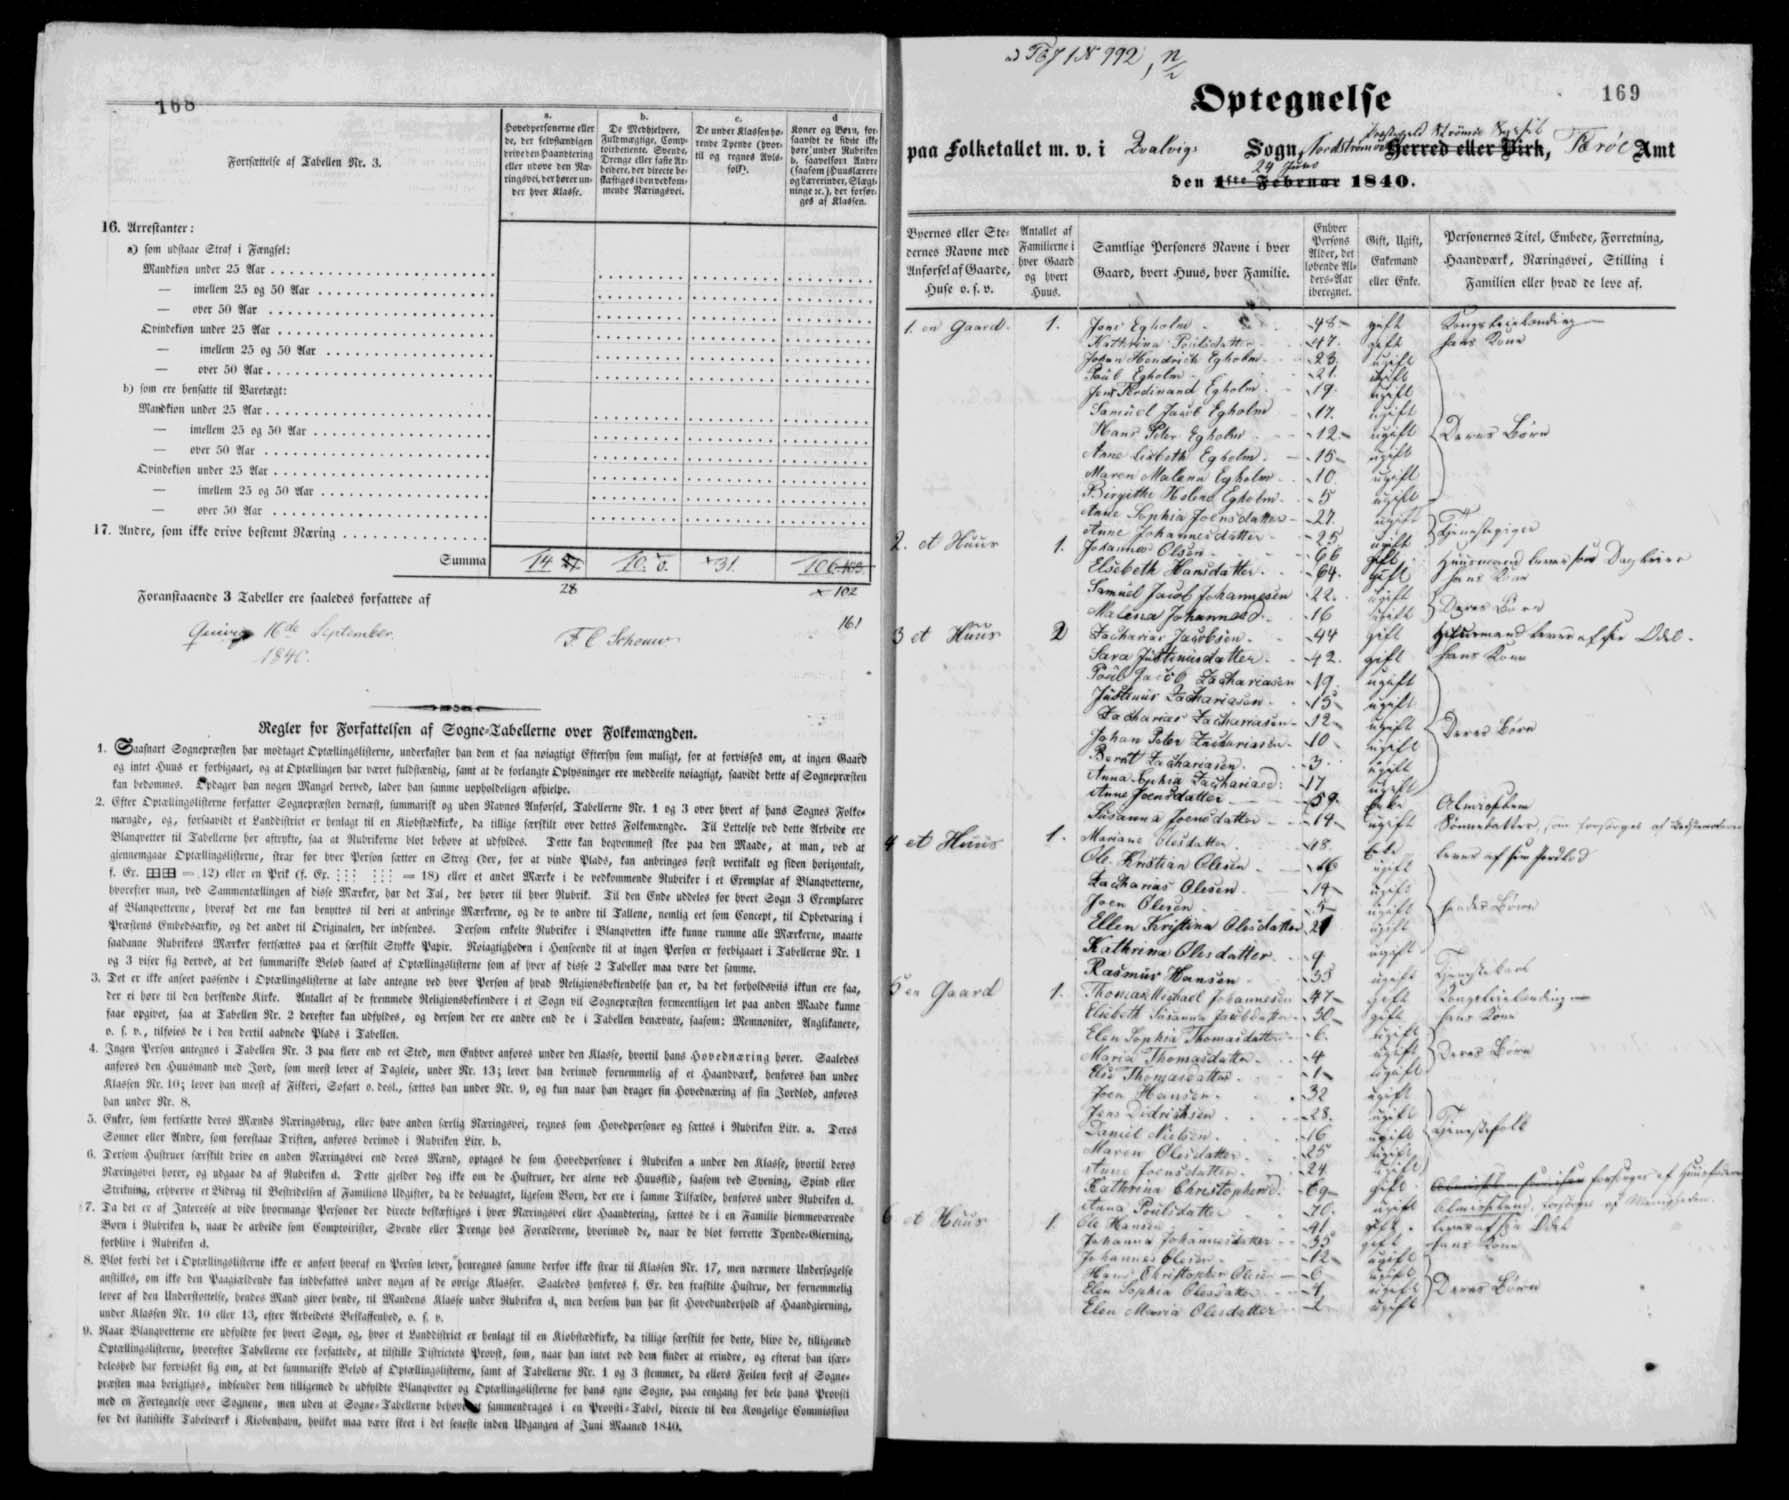 168
Fortsættelse af Tabellen Nr. 3.
a.
Hovedpersonerne eller de, der selvstændigen drive den Haandtering eller udøve den Næringsvei, der hører under hver Klasse.
b.
De Medhjelpere, Fuldmægtige, Comptoirbetiente, Svende, Drenge eller faste Arbeidere, der directe beskæftiges i den vedkommende Næringsvei.
c.
De under Klassen hørende Tyende (hvortil og regnes Avlsfolk).
d
Koner og Børn, forsaavidt de sidste ikke høre under Rubriken b, saavelsom Andre (saasom Huuslærere og Lærerinder, Slægtninge ꝛc.), der forsørges af Klassen.
16. Arrestanter:
a) som udstaae Straf i Fængsel:
Mandkiøn under 25 Aar
— imellem 25 og 50 Aar
— over 50 Aar
Qvindekiøn under 25 Aar
— imellem 25 og 50 Aar
— over 50 Aar
b) som ere hensatte til Varetægt:
Mandkiøn under 25 Aar
— imellem 25 og 50 Aar
— over 50 Aar
Qvindekiøn under 25 Aar
— imellem 25 og 50 Aar
— over 50 Aar
17. Andre, som ikke drive bestemt Næring
Summa 14 10. 31. 106
28 102
Foranstaaende 3 Tabeller ere saaledes forfattede af
161
16de September F. C. Schouw
1840.
Regler for Forfattelsen af Sogne-Tabellerne over Folkemængden.
1. Saasnart Sognepræsten har modtaget Optællingslisterne, underkaster han dem et saa nøiagtigt Eftersyn som muligt, for at forvisses om, at ingen Gaard
og intet Huus er forbigaaet, og at Optællingen har været fuldstændig, samt at de forlangte Oplysninger ere meddeelte nøiagtigt, saavidt dette af Sognepræsten
kan bedømmes. Opdager han nogen Mangel derved, lader han samme uopholdeligen afhielpe.
2. Efter Optællingslisterne forfatter Sognepræsten dernæst, summarisk og uden Navnes Anførsel, Tabellerne Nr. 1 og 3 over hvert af hans Sognes Folke-
mængde, og, forsaavidt et Landdistrict er henlagt til en Kiøbstædkirke, da tillige særskilt over dettes Folkemængde. Til Lettelse ved dette Arbeide ere
Blanqvetter til Tabellerne her aftrykte, saa at Rubrikerne blot behøve at udfyldes. Dette kan beqvemmest skee paa den Maade, at man, ved at
giennemgaae Optællingslisterne, strax for hver Person sætter en Streg (der, for at vinde Plads, kan anbringes først vertikalt og siden horizontalt,
f. Ex. = 12) eller en Prik (f. Ex. = 18) eller et andet Mærke i de vedkommende Rubriker i et Exemplar af Blanqvetterne,
hvorefter man, ved Sammentællingen af disse Mærker, har det Tal, der hører til hver Rubrik. Til den Ende uddeles for hvert Sogn 3 Exemplarer
af Blanqvetterne, hvoraf det ene kan benyttes til deri at anbringe Mærkerne, og de to andre til Tallene, nemlig eet som Concept, til Opbevaring i
Præstens Embedsarkiv, og det andet til Originalen, der indsendes. Dersom enkelte Rubriker i Blanqvetten ikke kunne rumme alle Mærkerne, maatte
saadanne Rubrikers Mærker fortsættes paa et særskilt Stykke Papir. Nøiagtigheden i Henseende til at ingen Person er forbigaaet i Tabellerne Nr. 1
og 3 viser sig derved, at det summariske Beløb saavel af Optællingslisterne som af hver af disse 2 Tabeller maa være det samme.
3. Det er ikke anseet passende i Optællingslisterne at lade antegne ved hver Person af hvad Religionsbekiendelse han er, da det forholdsviis ikkun ere faa,
der ei høre til den herskende Kirke. Antallet af de fremmede Religionsbekiendere i et Sogn vil Sognepræsten formeentligen let paa anden Maade kunne
faae opgivet, saa at Tabellen Nr. 2 derefter kan udfyldes, og dersom der ere andre end de i Tabellen benævnte, saasom: Memnoniter, Anglikanere,
o. s. v., tilføies de i den dertil aabnede Plads i Tabellen.
4. Ingen Person antegnes i Tabellen Nr. 3 paa flere end eet Sted, men Enhver anføres under den Klasse, hvortil hans Hovednæring hører. Saaledes
anføres den Huusmand med Jord, som meest lever af Dagleie, under Nr. 13; lever han derimod fornemmelig af et Haandværk, henføres han under
Klassen Nr. 10; lever han meest af Fiskeri, Søfart o. desl., sættes han under Nr. 9, og kun naar han drager sin Hovednæring af sin Jordlod, anføres
han under Nr. 8.
5. Enker, som fortsætte deres Mænds Næringsbrug, eller have anden særlig Næringsvei, regnes som Hovedpersoner og sættes i Rubriken Litr. a. Deres
Sønner eller Andre, som forestaae Driften, anføres derimod i Rubriken Litr. b.
6. Dersom Hustruer særskilt drive en anden Næringsvei end deres Mænd, optages de som Hovedpersoner i Rubriken a under den Klasse, hvortil deres
Næringsvei hører, og udgaae da af Rubriken d. Dette gjelder dog ikke om de Hustruer, der alene ved Huusflid, saasom ved Syening, Spind eller
Strikning, erhverve et Bidrag til Bestridelsen af Familiens Udgifter, da de desuagtet, ligesom Børn, der ere i samme Tilfælde, henføres under Rubriken d.
7. Da det er af Interesse at vide hvormange Personer der directe beskæftiges i hver Næringsvei eller Haandtering, sættes de i en Familie hiemmeværende
Børn i Rubriken b, naar de arbeide som Comptoirister, Svende eller Drenge hos Forældrene, hvorimod de, naar de blot forrette Tyende-Gierning,
forblive i Rubriken d.
8. Blot fordi det i Optællingslisterne ikke er anført hvoraf en Person lever, henregnes samme derfor ikke strax til Klassen Nr. 17, men nærmere Undersøgelse
anstilles, om ikke den Paagiældende kan indbefattes under nogen af de øvrige Klasser. Saaledes henføres f. Ex. den fraskilte Hustrue, der fornemmelig
lever af den Understøttelse, hendes Mand giver hende, til Mandens Klasse under Rubriken d, men dersom hun har sit Hovedunderhold af Haandgierning,
under Klassen Nr. 10 eller 13, efter Arbeidets Beskaffenhed, o. s. v.
9. Naar Blanqvetterne ere udfyldte for hvert Sogn, og, hvor et Landdistrict er henlagt til en Kiøbstædkirke, da tillige særskilt for dette, blive de, tilligemed
Optællingslisterne, hvorefter Tabellerne ere forfattede, at tilstille Districtets Provst, som, naar han intet ved dem finder at erindre, og efterat han især-
deleshed har forvisset sig om, at det summariske Beløb af Optællingslisterne, samt af Tabellerne Nr. 1 og 3 stemmer, da ellers Feilen først af Sogne-
præsten maa berigtiges, indsender dem tilligemed de udfyldte Blanqvetter og Optællingslisterne for hans egne Sogne, paa eengang for hele hans Provsti
med en Fortegnelse over Sognene, men uden at Sogne-Tabellerne behøve at sammendrages i en Provsti-Tabel, directe til den Kongelige Commission
for det statistiske Tabelværk i Kiøbenhavn, hvilket maa være skeet i det seneste inden Udgangen af Juni Maaned 1840.
№ 992
169
Optegnelse
paa Folketallet m. v. i Qvalvigs Sogn, Herred eller Birk, Færøe Amt
24 Juno
den 1ste Februar 1840.
Byernes eller Stedernes Navne med Anførsel af Gaarde, Huse o. s. v.
Antallet af Familierne i hver Gaard og hvert Huus.
Samtlige Personers Navne i hver Gaard, hvert Huus, hver Familie.
Enhver Persons Alder, det løbende Alders-Aar iberegnet.
Gift, Ugift, Enkemand eller Enke.
Personernes Titel, Embede, Forretning, Haandværk, Næringsvei, Stilling i Familien eller hvad de leve af.
1. en Gaard. 1. Jens Egholm 48 gift
Kathrina Poulsdatter 47 gift hans Kone
Johan Hendrich Egholm 23. ugift
Poul Egholm 21. ugift
Jens Ferdinand Egholm 19. ugift
Samuel Jacob Egholm 17. ugift
Hans Peter Egholm 12. ugift Deres Børn
Anne Lisbeth Egholm 15 ugift
Maren Malena Egholm 10. ugift
Birgitha Helena Egholm 5 ugift
Anne Sophia Joensdatter 27. ugift
Anne Johannesdatter 25 ugift Tjenestepiger
2. et Huus 1. Johannes Olsen 66 gift
Elsebeth Hansdatter 64. gift hans Kone
Samuel Jacob Johannesen 22. ugift
Malena Johannesd. 16 ugift Deres Børn
3 et Huus 2 Zacharias Jacobsen 44 gift
Sara Justinusdatter 42. gift hans Kone
Poul Jacob Zachariasen 19. ugift
Justinus Zachariasen 15 ugift
Zacharias Zachariasen 12 ugift Deres Børn
Johan Peter Zachariasen 10 ugift
Bernt Zachariasen 3 ugift
Anna Sophia Zachariasd: 17 ugift
Anne Joensdatter 59. Enke Almisselem
Susanna Joensdatter 14 ugift
4 et Huus 1. Mariane Olesdatter 48. Enke
Ole Kristian Olesen 16 ugift
Zacharias Olesen 14 ugift
Joen Olesen 5 ugift hendes Børn
Ellen Kristina Olesdatter 21 ugift
Kathrina Olesdatter 9 ugift
Rasmus Hansen 35 ugift
5 en Gaard 1. Thomas Michael Johannesen 47 gift
Elsebeth Susanna Jacobdatter 30 gift hans Kone
Elen Sophia Thomasdatter 6. ugift
Maria Thomasdatter 4 ugift Deres Børn
Else Thomasdatter 1 ugift
Joen Hansen 32 ugift
Jens Didrichsen 28. ugift
Daniel Nielsen 16 ugift Tjenestefolk
Maren Olesdatter 25 ugift
Anne Joensdatter 24 ugift
Kathrina Christophersd. 69 gift
Anna Poulsdatter 70. ugift
6 et Huus 1. Ole Hansen 41 gift
Johanna Johannesdatter 35 gift hans Kone
Johannes Olesen 12 ugift
Hans Christopher Olesen 6 ugift
Elen Sophia Olesdatter 4 ugift Deres Børn
Elen Maria Olesdatter ugift